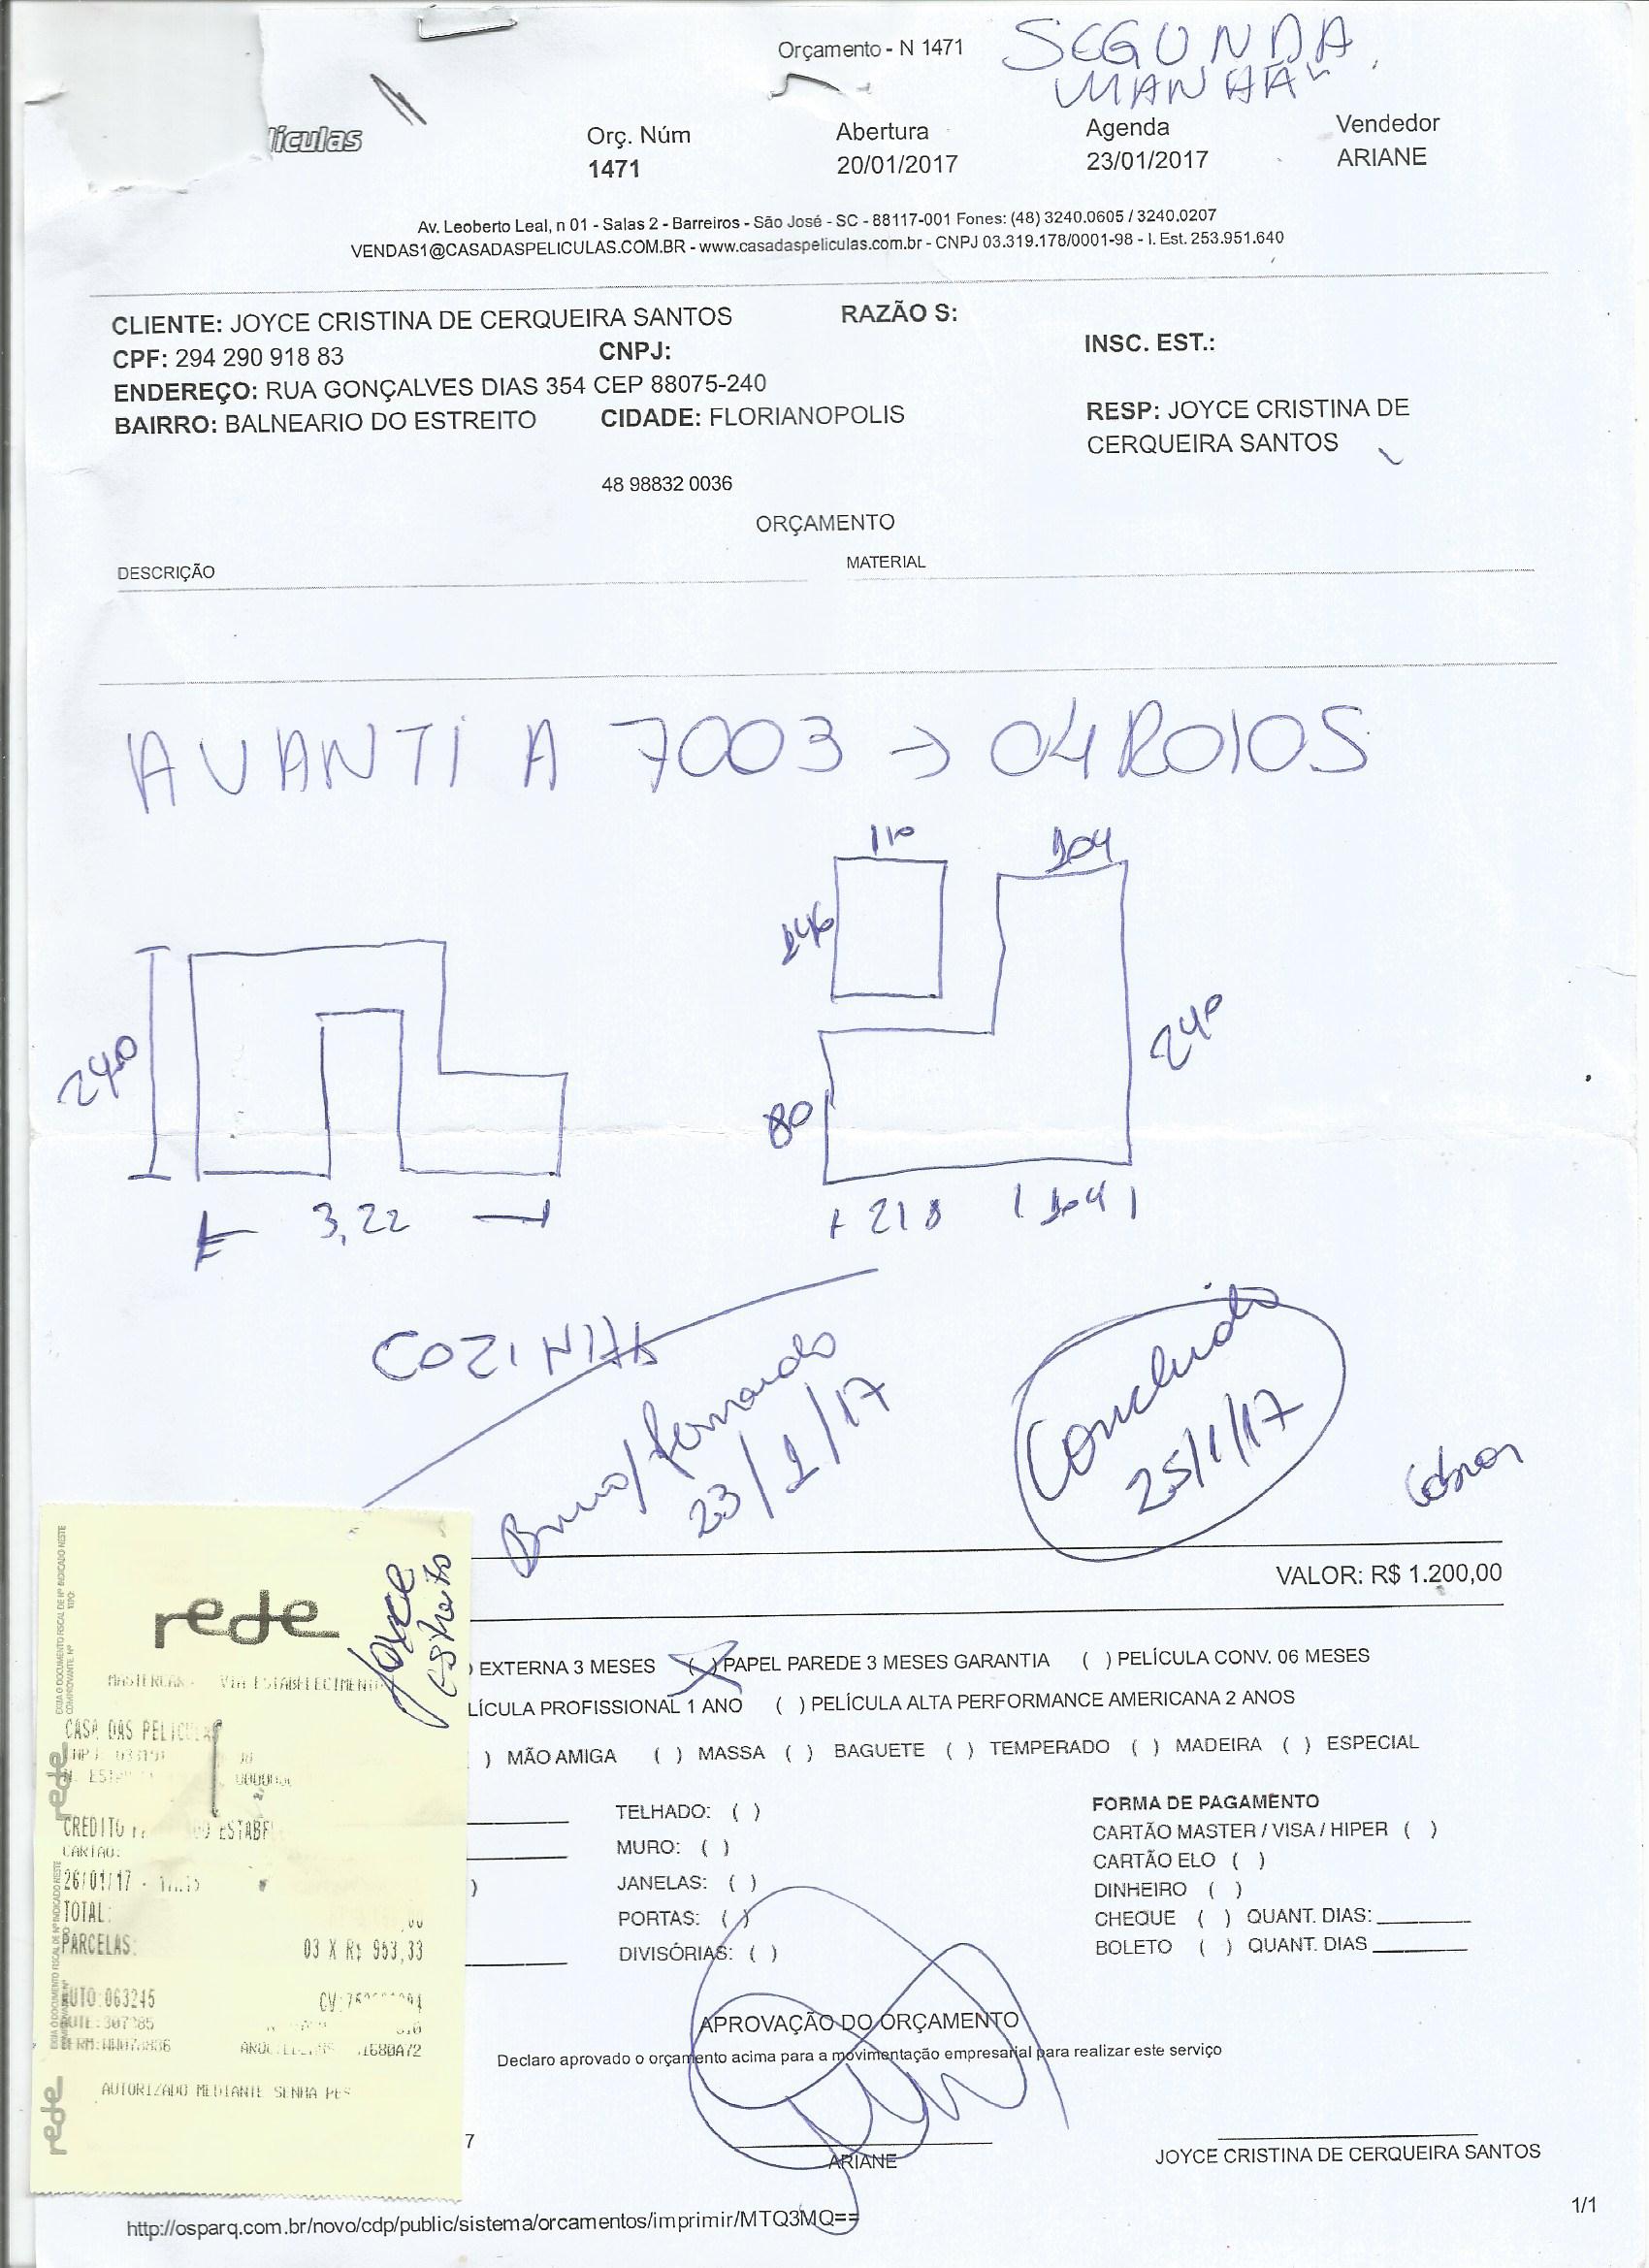 Orçamento - N 1471
SEGUNDA
MANHÃ
ículas
Orç. Núm
1471
Abertura
20/01/2017
Agenda
23/01/2017
Vendedor
ARIANE
Av. Leoberto Leal, n 01 - Salas 2 - Barreiros - São José - SC - 88117-001 Fones: (48) 3240.0605 / 3240.0207
VENDAS1@CASADASPELICULAS.COM.BR - www.casadaspeliculas.com.br - CNPJ 03.319.178/0001-98 - I. Est. 253.951.640
CLIENTE: JOYCE CRISTINA DE CERQUEIRA SANTOS
RAZÃO S:
CPF: 294 290 918 83
CNPJ:
INSC. EST.:
ENDEREÇO: RUA GONÇALVES DIAS 354 CEP 88075-240
BAIRRO: BALNEARIO DO ESTREITO
CIDADE: FLORIANOPOLIS
RESP: JOYCE CRISTINA DE
CERQUEIRA SANTOS
48 98832 0036
ORÇAMENTO
DESCRIÇÃO
MATERIAL
AVANTI A 7003 → 04 ROLOS
110
104
146
240
240
80
3,22
218
104
COZINHA
Bruno/Fernando
23/1/17
Concluido
25/1/17
Cobrar
VALOR: R$ 1.200,00
EXTERNA 3 MESES ( ) PAPEL PAREDE 3 MESES GARANTIA ( ) PELÍCULA CONV. 06 MESES
LÍCULA PROFISSIONAL 1 ANO ( ) PELÍCULA ALTA PERFORMANCE AMERICANA 2 ANOS
) MÃO AMIGA ( ) MASSA ( ) BAGUETE ( ) TEMPERADO ( ) MADEIRA ( ) ESPECIAL
TELHADO: ( )
MURO: ( )
JANELAS: ( )
PORTAS: ( )
DIVISÓRIAS: ( )
FORMA DE PAGAMENTO
CARTÃO MASTER / VISA / HIPER ( )
CARTÃO ELO ( )
DINHEIRO ( )
CHEQUE ( ) QUANT. DIAS:
BOLETO ( ) QUANT. DIAS
rede
Joyce
estreito
MASTERCARD VIA ESTABELECIMENTO
CASA DAS PELICULAS
CREDITO ESTABE
CARTAO:
26/01/17 -
TOTAL:
PARCELAS: 03 X R$ 953,33
AUTO:063245
AUTORIZADO MEDIANTE SENHA PES
rede
rede
APROVAÇÃO DO ORÇAMENTO
Declaro aprovado o orçamento acima para a movimentação empresarial para realizar este serviço
7
ARIANE
JOYCE CRISTINA DE CERQUEIRA SANTOS
1/1
http://osparq.com.br/novo/cdp/public/sistema/orcamentos/imprimir/MTQ3MQ==